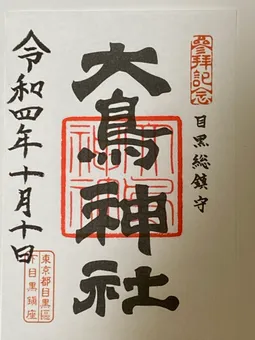 參拝記念
目黒総鎮守
大鳥神社
令和四年十月十日
東京都目黒區
下目黒鎮座